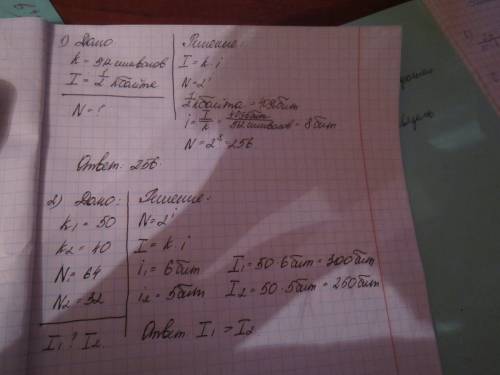 1) Дано:
k = 512 символов
I = 1/2 кбайта
N = ?
Решение:
I = k · i
N = 2^i
1/2 кбайта = 4096 бит
i = I/k = 4096 бит / 512 символов = 8 бит
N = 2^8 = 256
Ответ: 256
2) Дано:
k1 = 50
k2 = 40
N1 = 64
N2 = 32
I1 ? I2
Решение:
N = 2^i
I = k · i
i1 = 6 бит I1 = 50 · 6 бит = 300 бит
i2 = 5 бит I2 = 50 · 5 бит = 250 бит
Ответ I1 > I2